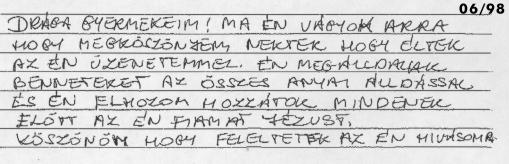 06/98
DRÁGA GYERMEKEIM! MA ÉN VÁGYOM ARRA
HOGY MEGKÖSZÖNJEM NEKTEK HOGY ÉLTEK
AZ ÉN ÜZENETEMMEL. ÉN MEGÁLDALAK
BENNETEKET AZ ÖSSZES ANYAI ÁLDÁSSAL
ÉS ÉN ELHOZOM HOZZÁTOK MINDENEK
ELŐTT AZ ÉN FIAMAT JÉZUST.
KÖSZÖNÖM HOGY FELELTETEK AZ ÉN HIVÁSOMRA